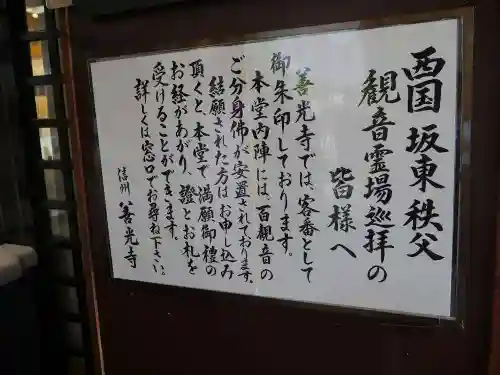 西国 坂東 秩父
観音霊場巡拝の
皆様へ
善光寺では、客番として
御朱印しております。
本堂内陣には、百観音の
ご分身佛が安置されております。
結願された方はお申し込み
頂くと、本堂で満願御禮の
お経があがり、證とお札を
受けることができます。
詳しくは窓口でお尋ね下さい。
信州 善光寺